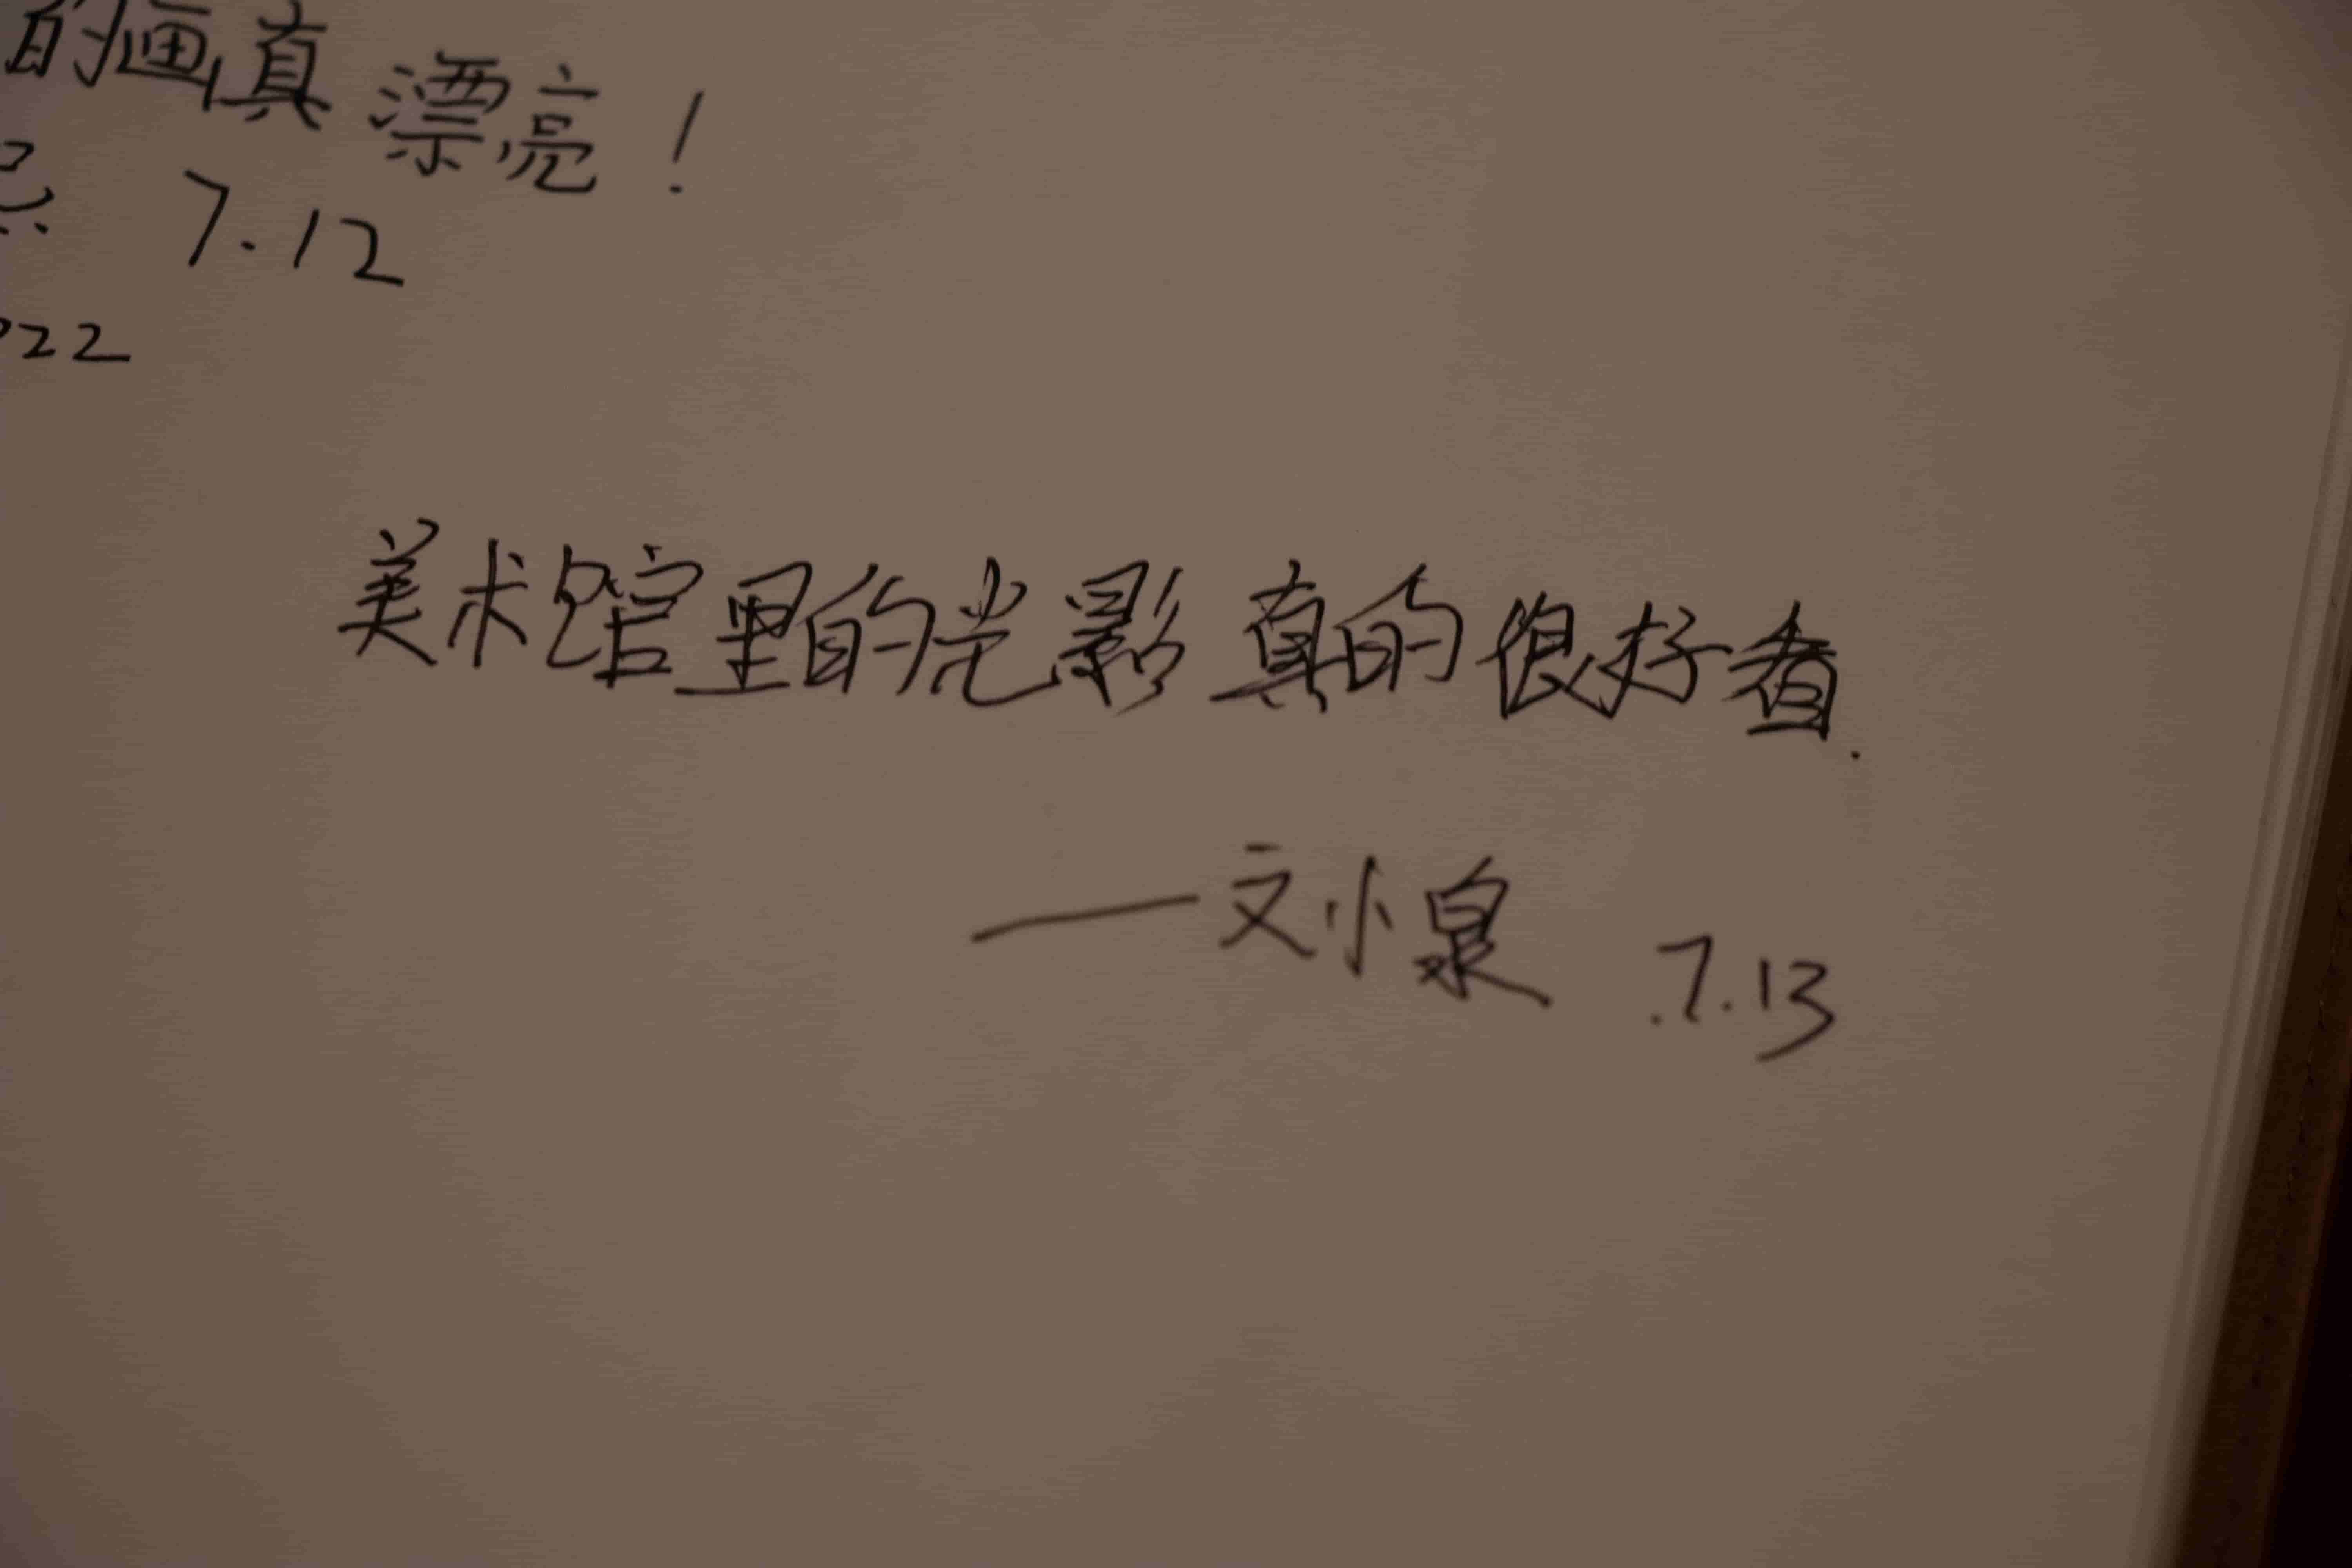 的画真漂亮!
7.12
022
美术馆里的光影真的很好看.
——文小泉 .7.13